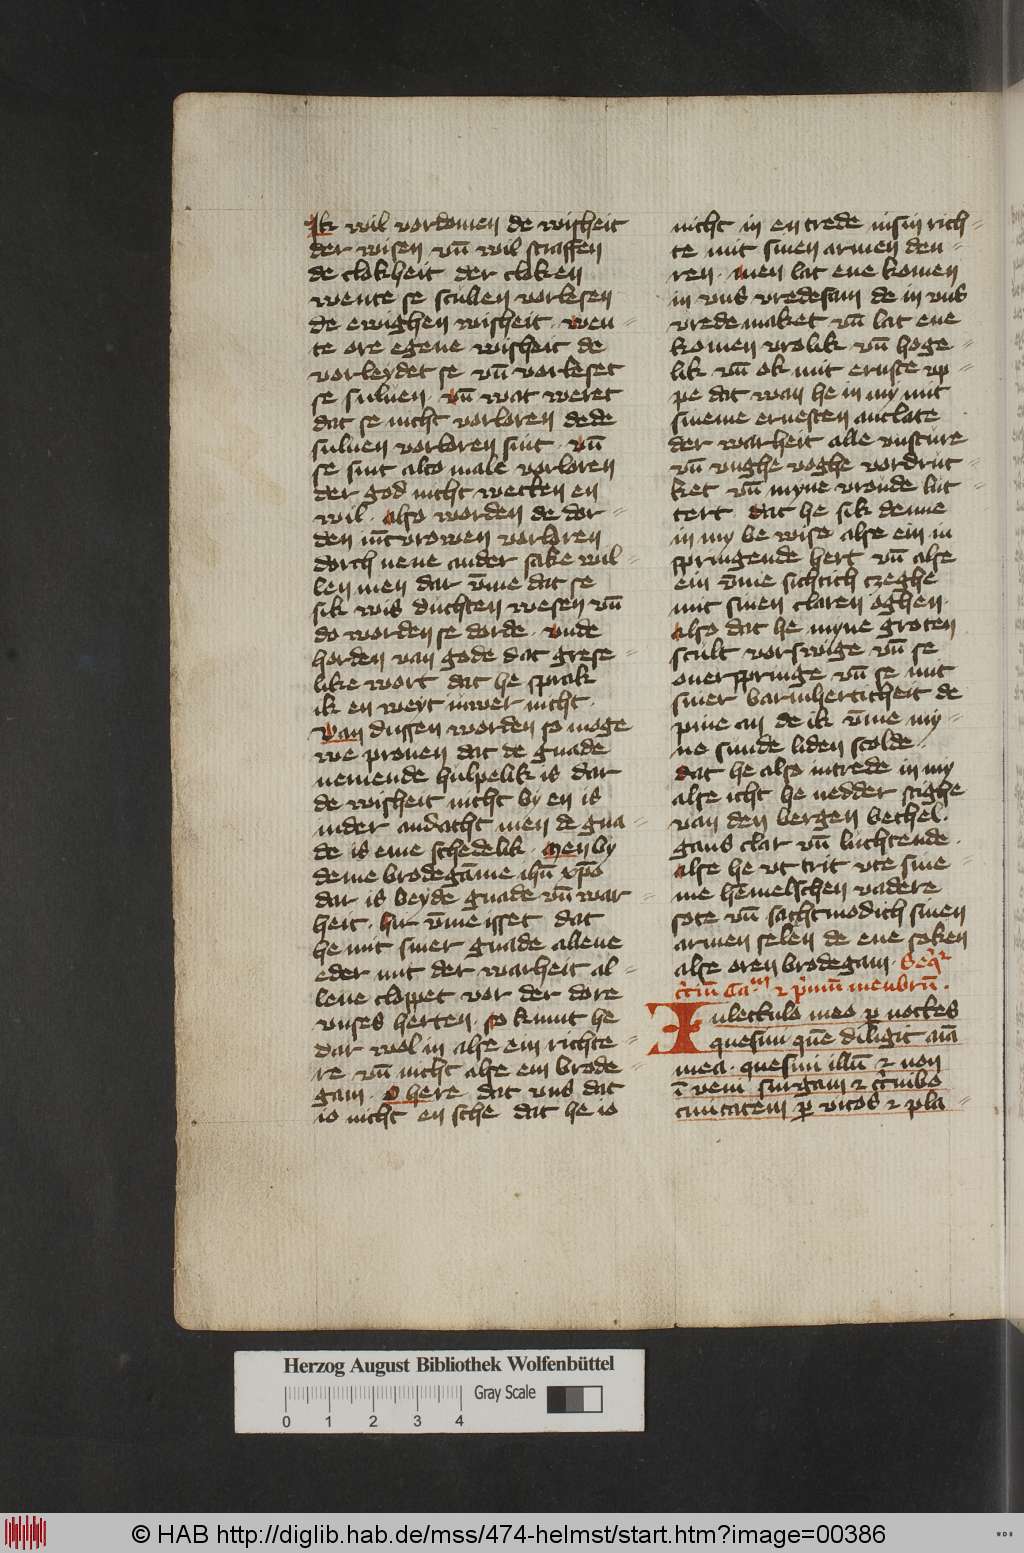 Ik wil vordomen de wisheit
der wisen vn̄ wil straffen
de clokheit der cloken
wente se scullen vorlesen
de ewighen wisheit. wen=
te ore egene wisheit de
vorleydet se vn̄ vorleset
se suluen. vn̄ wat weret
dat se nicht vorloren dede
suluen vorloren sint. vn̄
se sint alto male vorloren
der god nicht wecken en
wil. also worden de dor=
den iūcvrowen vorloren
dorch nene ander sake wil=
len men dar v̄me dat se
sik wis duchten wesen vn̄
do worden se dorde. vnde
horden van gode dat grese=
like wort dat he sprak
ik en weyt iuwer nicht.
Van dussen worden so moge
we prouen dat de gnade
nemende hulpelik is dar
de wisheit nicht by en is
in der andacht men de gna=
de is eme schedelik. Men by
deme brodegāme ih̄u xp̄o
dar is beyde gnade vn̄ war=
heit. hir v̄me isset dat
he mit siner gnade allene
eder mit der warheit al=
lene cloppet vor der dore
vnses herten. so kumt he
dar wol in alse ein richte=
re vn̄ nicht alse ein brode=
gam. O here dat vns dat
io nicht en sche dat he io
nicht in en trede in sin rich=
te mit sinen armen den=
ren. Men lat ene komen
in vns vredesam de in vns
vrede maket vn̄ lat ene
komen vrolik vn̄ hoge=
lik vn̄ ok mit ernste vp=
pe dat wan he in my mit
sineme ernesten antlate
der warheit alle vnsture
vn̄ vnghe voghe vordruc=
ket vn̄ myne vroude lut=
tert dat he sik denne
in my be wise alse ein in
springende hert vn̄ alse
ein v̄me sichtich czeghe
mit sinen claren oghen.
also dat he myne groten
scult vorswige vn̄ se
ouerspringe vn̄ se mit
siner barmherticheit de
pine an de ik v̄me my=
ne sunde liden scolde.
dat he also intrede in my
alse icht he nedder stighe
van den bergen bethel.
gans clar vn̄ luchtende.
alse he vt trit vte sine=
me hēmelschen vadere
sote vn̄ sachtmodich sinen
armen selen de ene soken
alse oren brodegam. Seq̄r
t̄ciū Ca^m ⁊ p̄mū menbrū.
In lectulo meo p noctes
quesiui quē diligit aīa
mea. quesiui illū ⁊ non
īveni surgam ⁊ c̄cuibo
ciuitatem p vicos ⁊ pla=
Herzog August Bibliothek Wolfenbüttel
Gray Scale
0 1 2 3 4
© HAB http://diglib.hab.de/mss/474-helmst/start.htm?image=00386